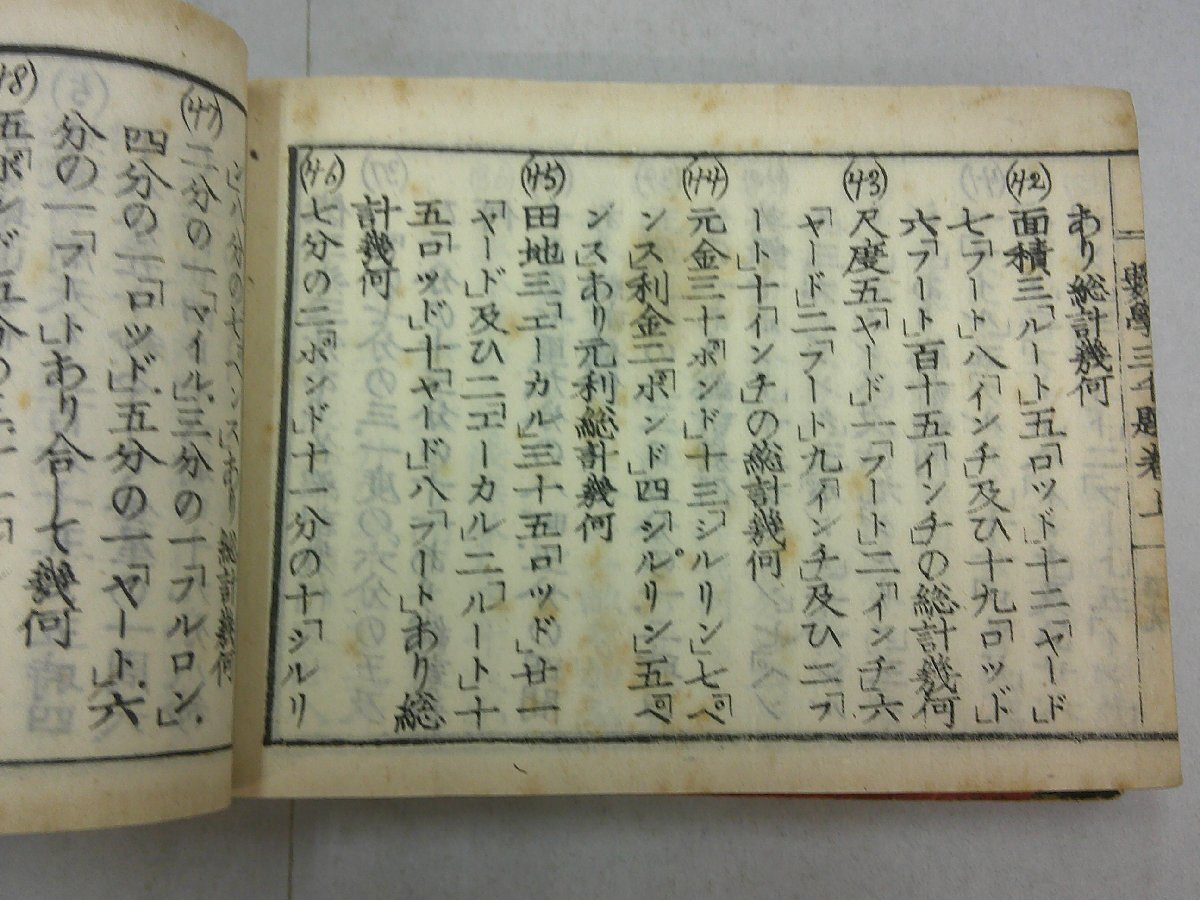 数學三千題巻上
あり総計幾何
(42)面積三「ルート」五「ロッド」十二「ヤード」
七「フート」八「インチ」及ひ十九「ロッド」
六「フート」百十五「インチ」の総計幾何
(43)尺度五「ヤード」一「フート」二「インチ」六
「ヤード」二「フート」九「インチ」及ひ二「フ
ート」十「インチ」の総計幾何
(44)元金三十「ポンド」十三「シルリン」七「ペ
ンス」利金二「ポンド」四「シルリン」五「ペ
ンス」あり元利総計幾何
(45)田地三「エーカル」三十五「ロッド」廿一
「ヤード」及ひ二「エーカル」二「ルート」十
五「ロッド」十「ヤード」八「フート」あり総
計幾何
(46)七分の三「ポンド」十一分の十「シルリ
総計幾何
(47)二分の一「マイル」三分の一「フルロン」
四分の三「ロッド」五分の一「ヤート」六
分の一「フート」あり合して幾何
(48)